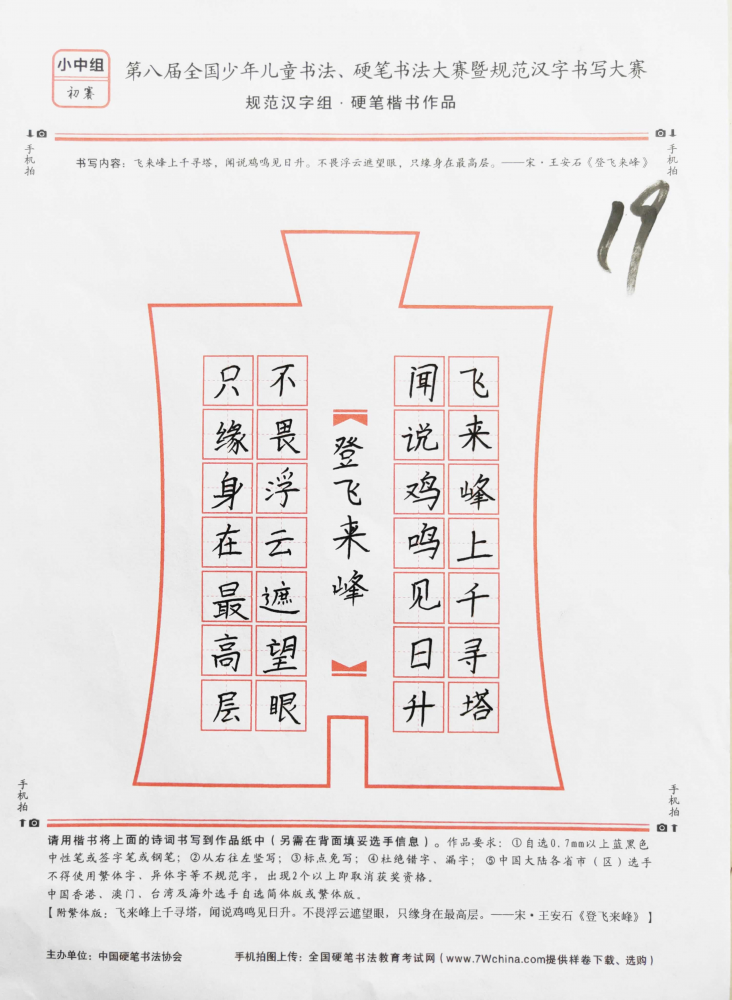 小中组
初赛
第八届全国少年儿童书法、硬笔书法大赛暨规范汉字书写大赛
规范汉字组·硬笔楷书作品
手机拍
手机拍
书写内容：飞来峰上千寻塔，闻说鸡鸣见日升。不畏浮云遮望眼，只缘身在最高层。——宋·王安石《登飞来峰》
19
飞来峰上千寻塔
闻说鸡鸣见日升
登飞来峰
不畏浮云遮望眼
只缘身在最高层
手机拍
手机拍
请用楷书将上面的诗词书写到作品纸中（另需在背面填妥选手信息）。作品要求：①自选0.7mm以上蓝黑色
中性笔或签字笔或钢笔；②从右往左竖写；③标点免写；④杜绝错字、漏字；⑤中国大陆各省市（区）选手
不得使用繁体字、异体字等不规范字，出现2个以上即取消获奖资格。
中国香港、澳门、台湾及海外选手自选简体版或繁体版。
【附繁体版：飞来峰上千寻塔，闻说鸡鸣见日升。不畏浮云遮望眼，只缘身在最高层。——宋·王安石《登飞来峰》】
主办单位：中国硬笔书法协会 手机拍图上传：全国硬笔书法教育考试网（www.7Wchina.com提供样卷下载、选购）